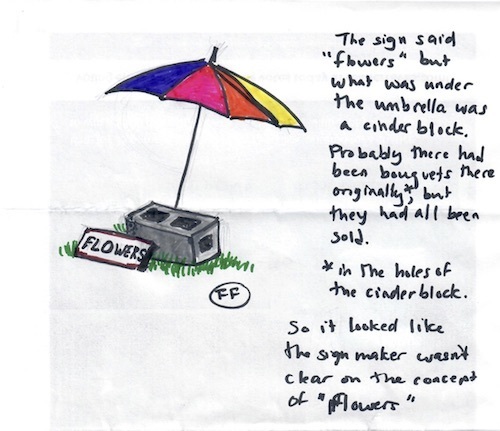 The sign said
"flowers" but
what was under
the umbrella was
a cinder block.
Probably there had
been bouquets there
originally*, but
they had all been
sold.
* in the holes of
the cinderblock.
So it looked like
the sign maker wasn't
clear on the concept
of "flowers"
FLOWERS
FF